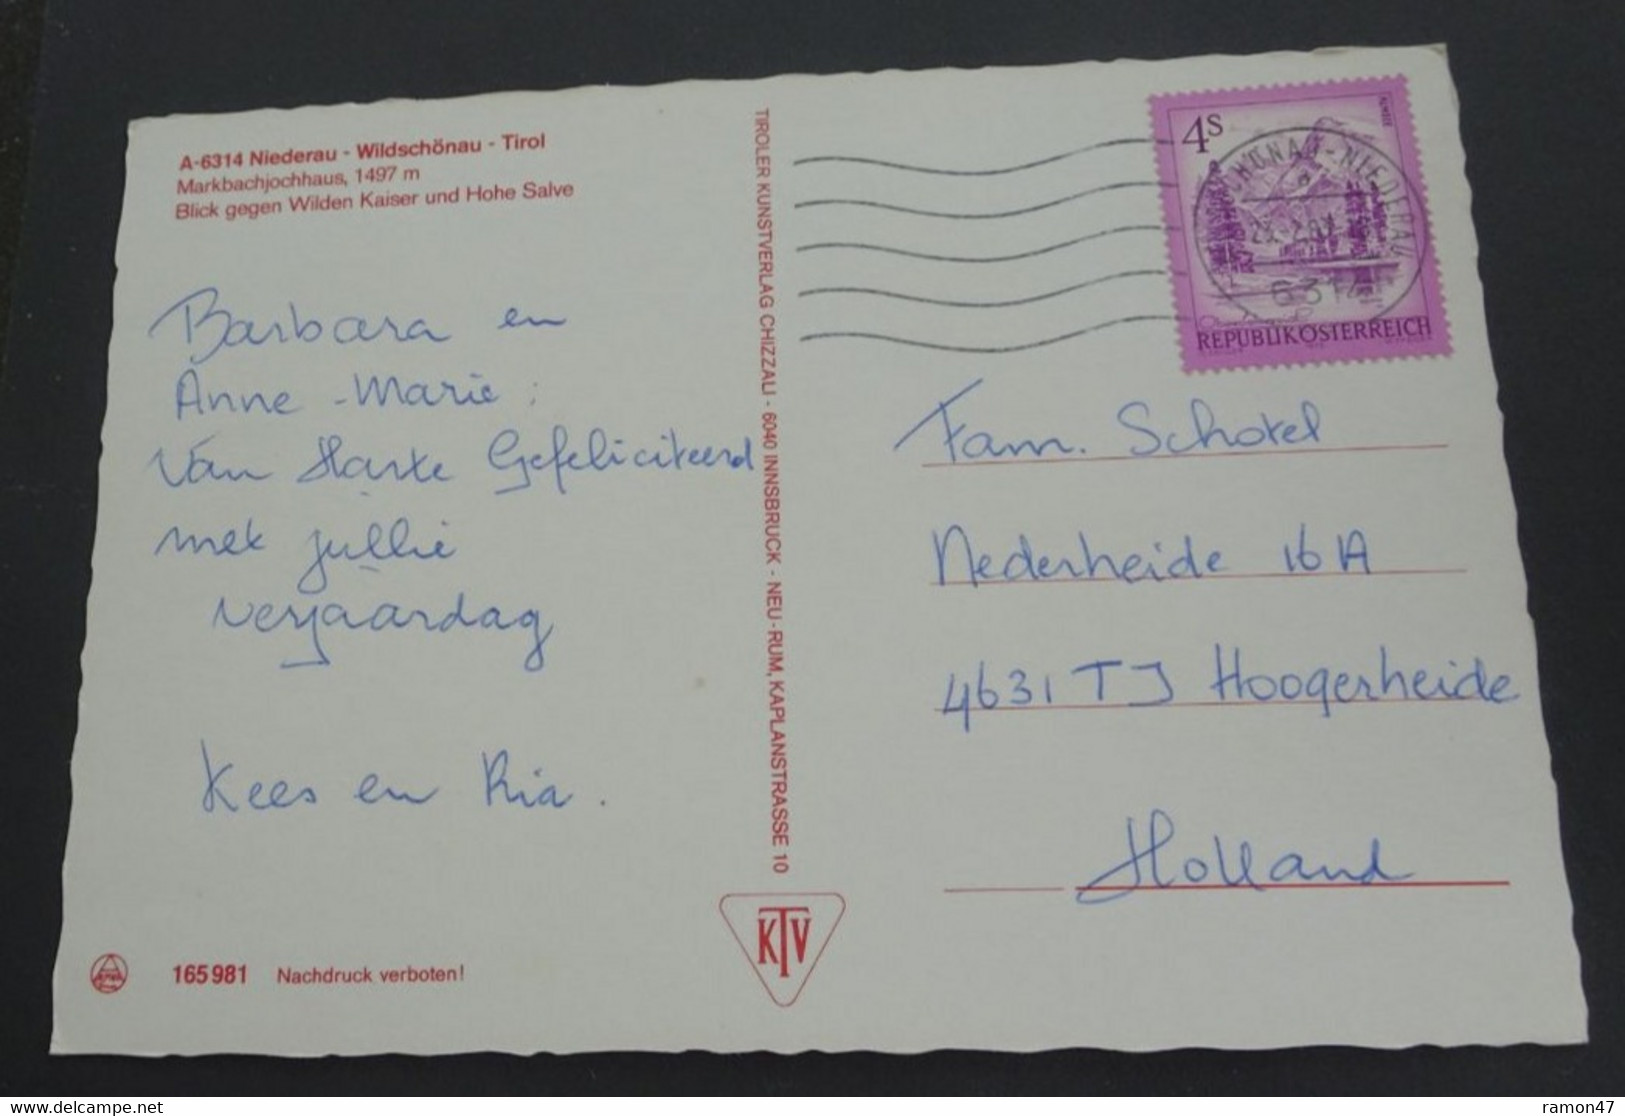 A-6314 Niederau - Wildschönau - Tirol
Markbachjochhaus, 1497 m
Blick gegen Wilden Kaiser und Hohe Salve
Barbara en
Anne-Marie:
Van Harte Gefeliciteerd
met jullie
verjaardag
Kees en Ria.
165981 Nachdruck verboten!
TIROLER KUNSTVERLAG CHIZZALI - 6040 INNSBRUCK - NEU-RUM, KAPLANSTRASSE 10
KTV
4S
REPUBLIK ÖSTERREICH
SCHÖNAU-NIEDERAU
6314
Fam. Schotel
Nederheide 16A
4631 TJ Hoogerheide
Holland
ramon47
delcampe.net